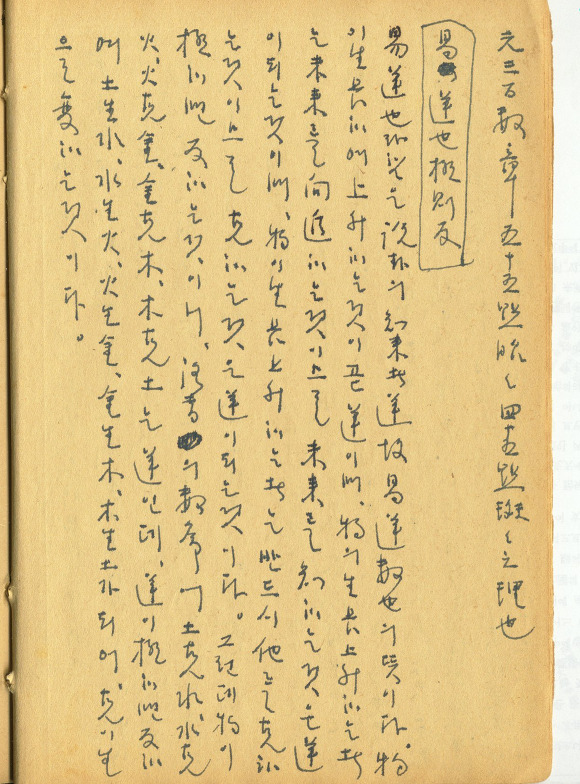 元三百數章 五十五點昭〻 四五點斑〻之理也
易逆也極則反
易逆也라 함은 說卦의 知來者逆 故易逆數也의 뜻이다. 物
이 生長하며 上升하는 것이 곧 逆이며, 物의 生長上升하는 者
는 未來를 向進하는 것이므로 未來를 知하는 것은 逆
이 되는 것이며, 物이 生長上升하는 者는 반드시 他를 克하
는 것이므로 克하는 것은 逆이 되는 것이다. 그런데 物이
極하면 反하는 것이니, 洛書의 數象에 土克水, 水克
火, 火克金, 金克木, 木克土는 逆인데, 逆이 極하면 反하
여 土生水, 水生火, 火生金, 金生木, 木生土가 되어, 克이 生
으로 變하는 것이다.